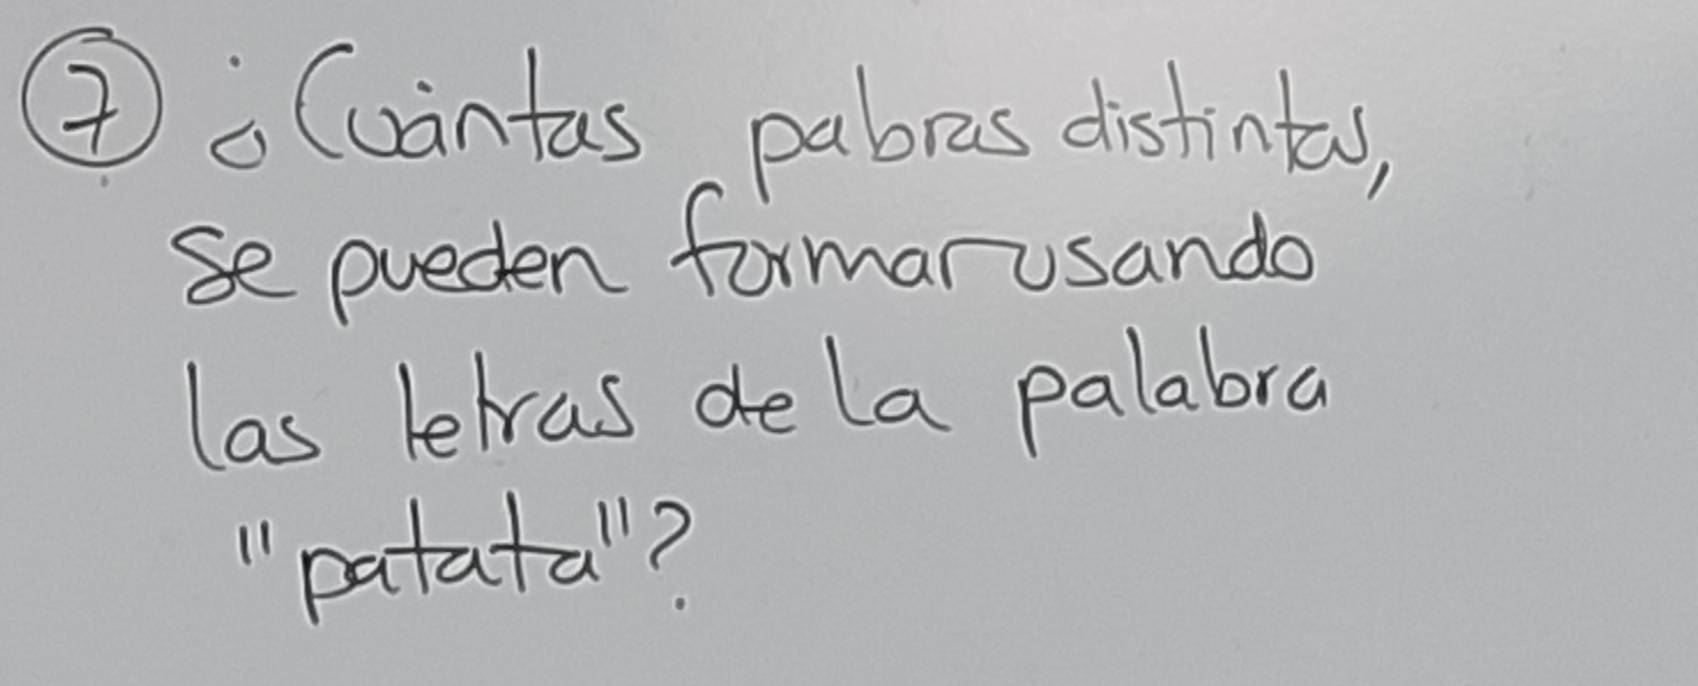 7 ¿Cuántas pabras distintas,
se pueden formar usando
las letras de la palabra
"patata"?